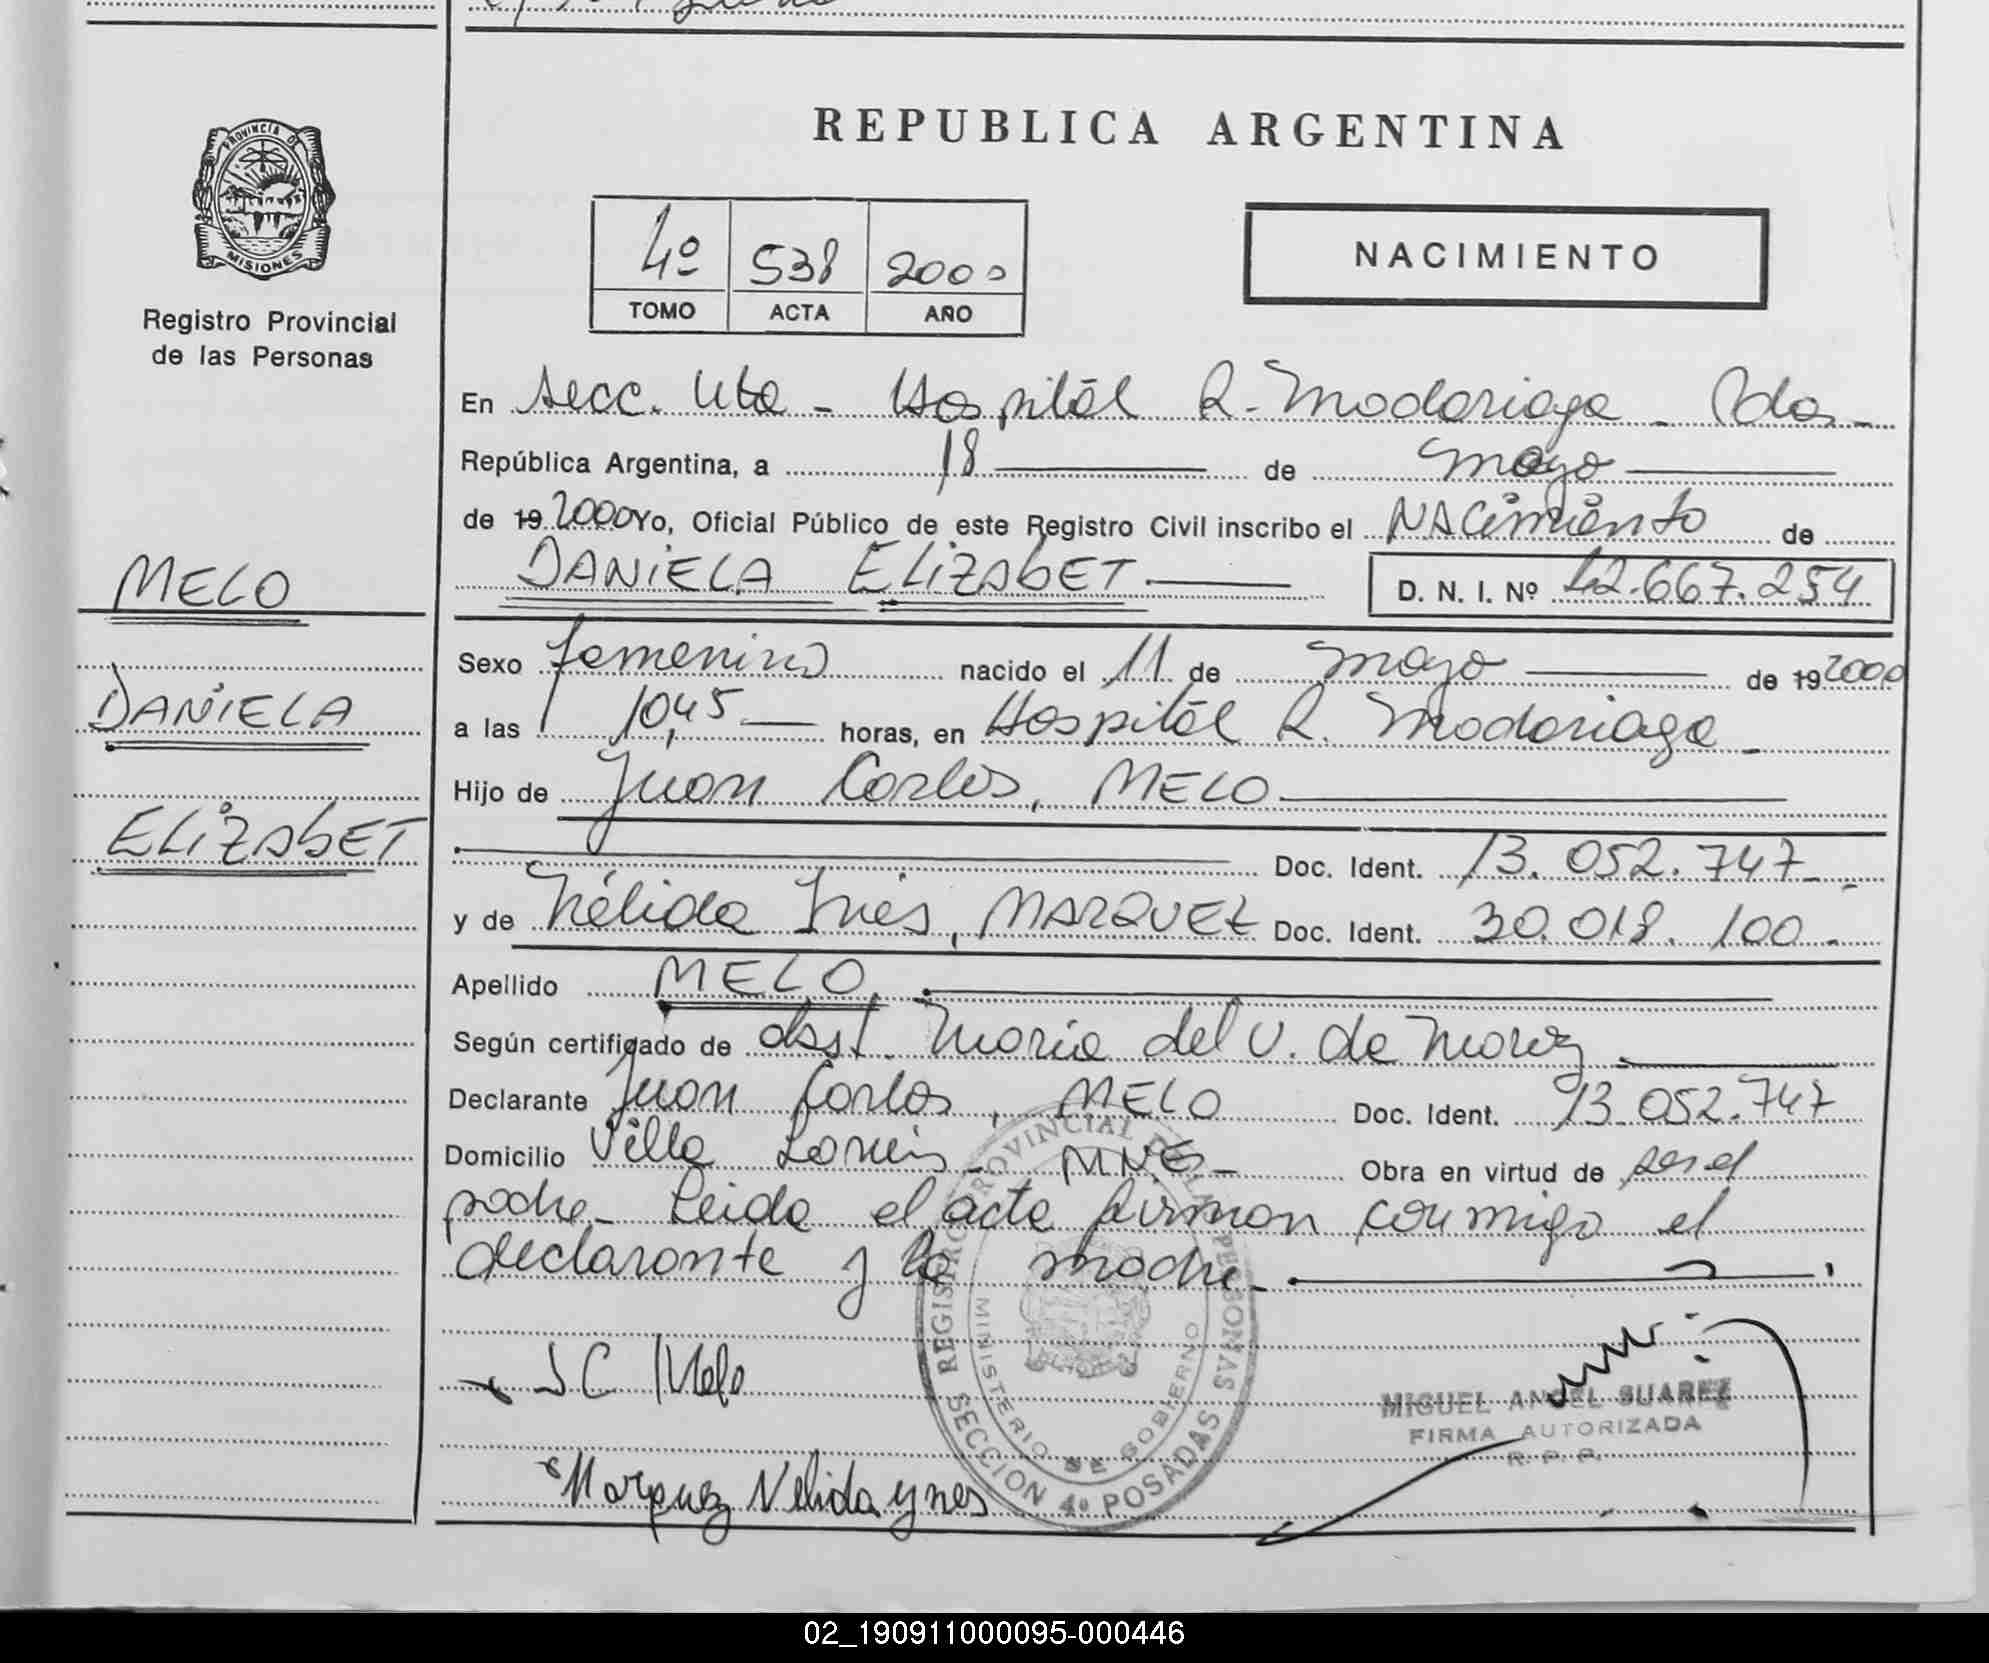 REPUBLICA ARGENTINA
PROVINCIA DE
MISIONES
Registro Provincial
de las Personas
4º 538 2000
TOMO ACTA AÑO
NACIMIENTO
En Secc. 4ta - Hospital R. Madariaga - Pdas -
República Argentina, a 18 de mayo
de 19 2000 Yo, Oficial Público de este Registro Civil inscribo el NACimiento de
DANiELA ELiZAbET D. N. I. Nº 42.667.254
MELO
DANiELA
ELiZAbET
Sexo femenino nacido el 11 de mayo de 19 2000
a las 10,45 horas, en Hospital R. Madariaga -
Hijo de Juan Carlos, MELO
Doc. Ident. 13.052.747 -
y de Nélida Inés, MARQUEZ Doc. Ident. 30.018.100 -
Apellido MELO
Según certificado de obst. Maria del V. de
Declarante Juan Carlos, MELO Doc. Ident. 13.052.747
Domicilio Villa - MNES - Obra en virtud de ser el
padre - Leida el acta firman conmigo el
declarante y la madre -
REGISTRO PROVINCIAL DE LAS PERSONAS
MINISTERIO DE GOBIERNO
SECCION 4º POSADAS
J C Melo
MIGUEL ANGEL SUAREZ
FIRMA AUTORIZADA
R. P. P.
Marquez Nelida ynes
02_190911000095-000446